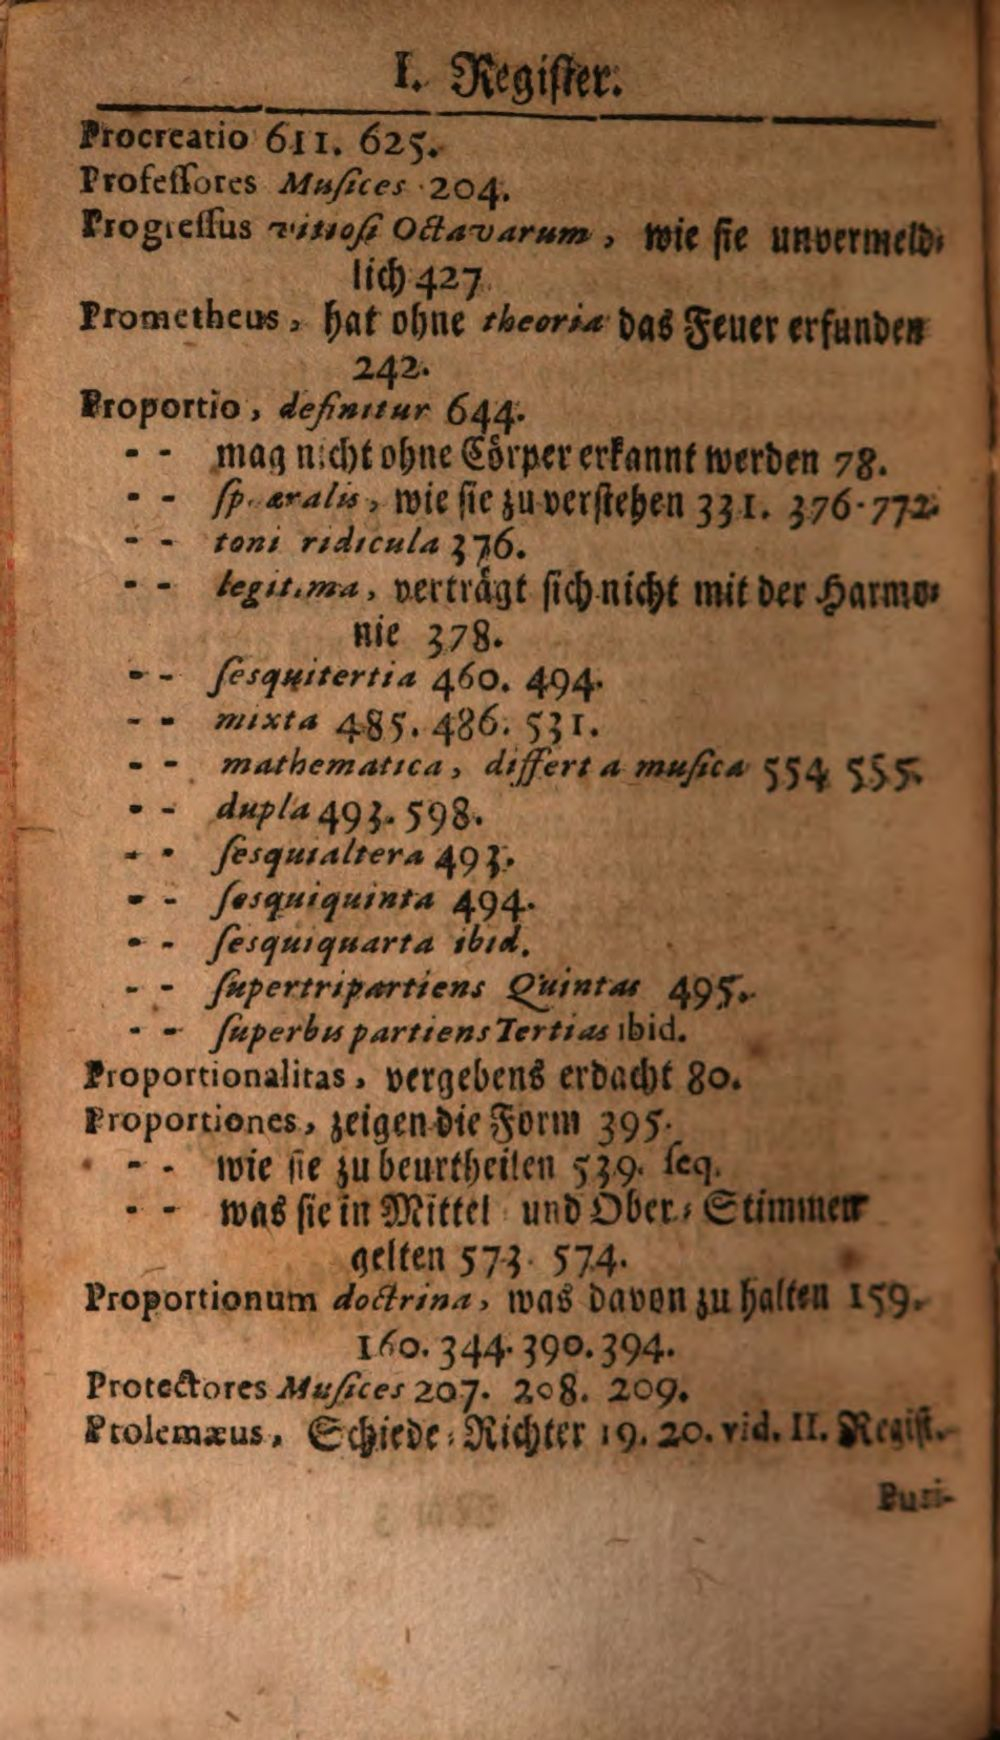 I. Regiſter.
Procreatio 611. 625.
Profeſſores Muſices 204.
Progreſſus vitioſi Octavarum, wie ſie unvermeld⸗
lich 427.
Prometheus, hat ohne theoria das Feuer erfunden
242.
Proportio, definitur 644.
- - mag nicht ohne Cörper erkannt werden 78.
- - ſphæralis, wie ſie zu verſtehen 331. 376. 772.
- - toni ridicula 376.
- - legitima, verträgt ſich nicht mit der Harmo⸗
nie 378.
- - ſesquitertia 460. 494.
- - mixta 485. 486. 531.
- - mathematica, differt a muſica 554 555.
- - dupla 493. 598.
- - ſesquialtera 493.
- - ſesquiquinta 494.
- - ſesquiquarta ibid.
- - ſupertripartiens Quintas 495.
- - ſuperbis partiens Tertias ibid.
Proportionalitas, vergebens erdacht 80.
Proportiones, zeigen die Form 395.
- - wie ſie zu beurtheilen 539. ſeq.
- - was ſie in Mittel und Ober⸗Stimmen
gelten 573. 574.
Proportionum doctrina, was davon zu halten 159.
160. 344. 390. 394.
Protectores Muſices 207. 208. 209.
Ptolemæus, Schiede⸗Richter 19. 20. vid. II. Regiſt.
Puri-